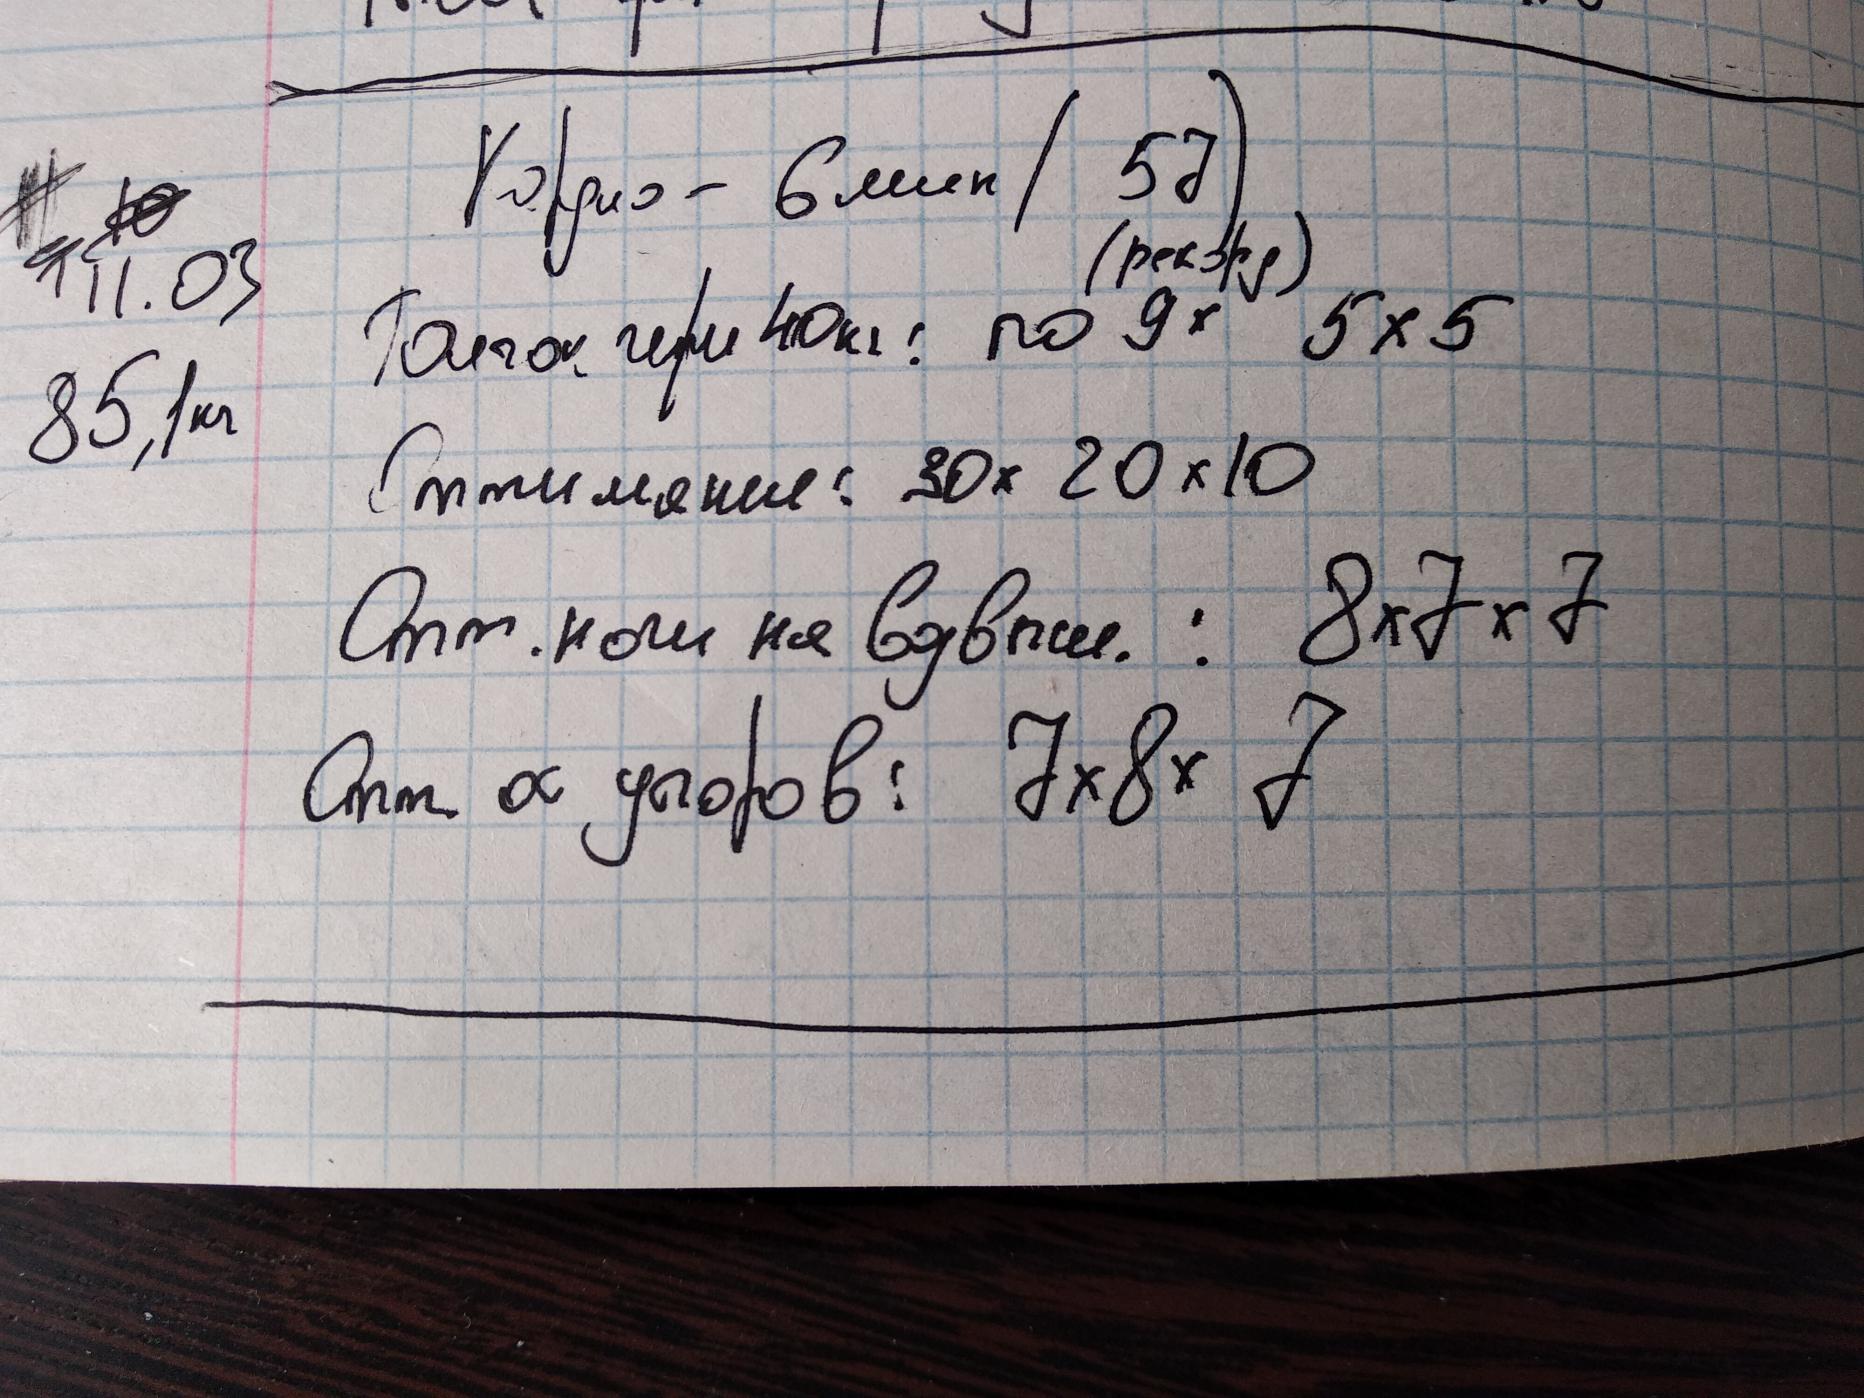 11.03
85,1кг
Кардио - 6 мин (57)
(рекорд)
Толчок гири 40кг: по 9х 5х5
Отжимания: 30х 20х10
Отж. ноги на возвыш. : 8х7х7
Отж. от упоров: 7х8х 7